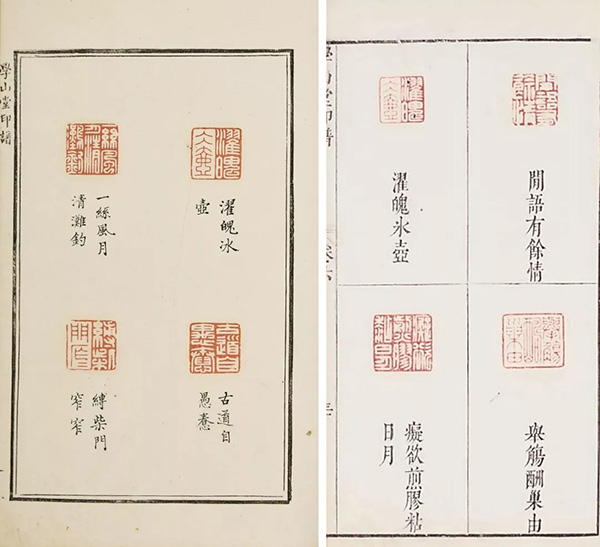 學山堂印譜
濯魄冰
壺
一絲風月
清灘釣
古道自
愚憃
縛柴門
窄窄
閒語有餘情
濯魄氷壺
舉觴酬巢由
癡欲煎膠粘
日月